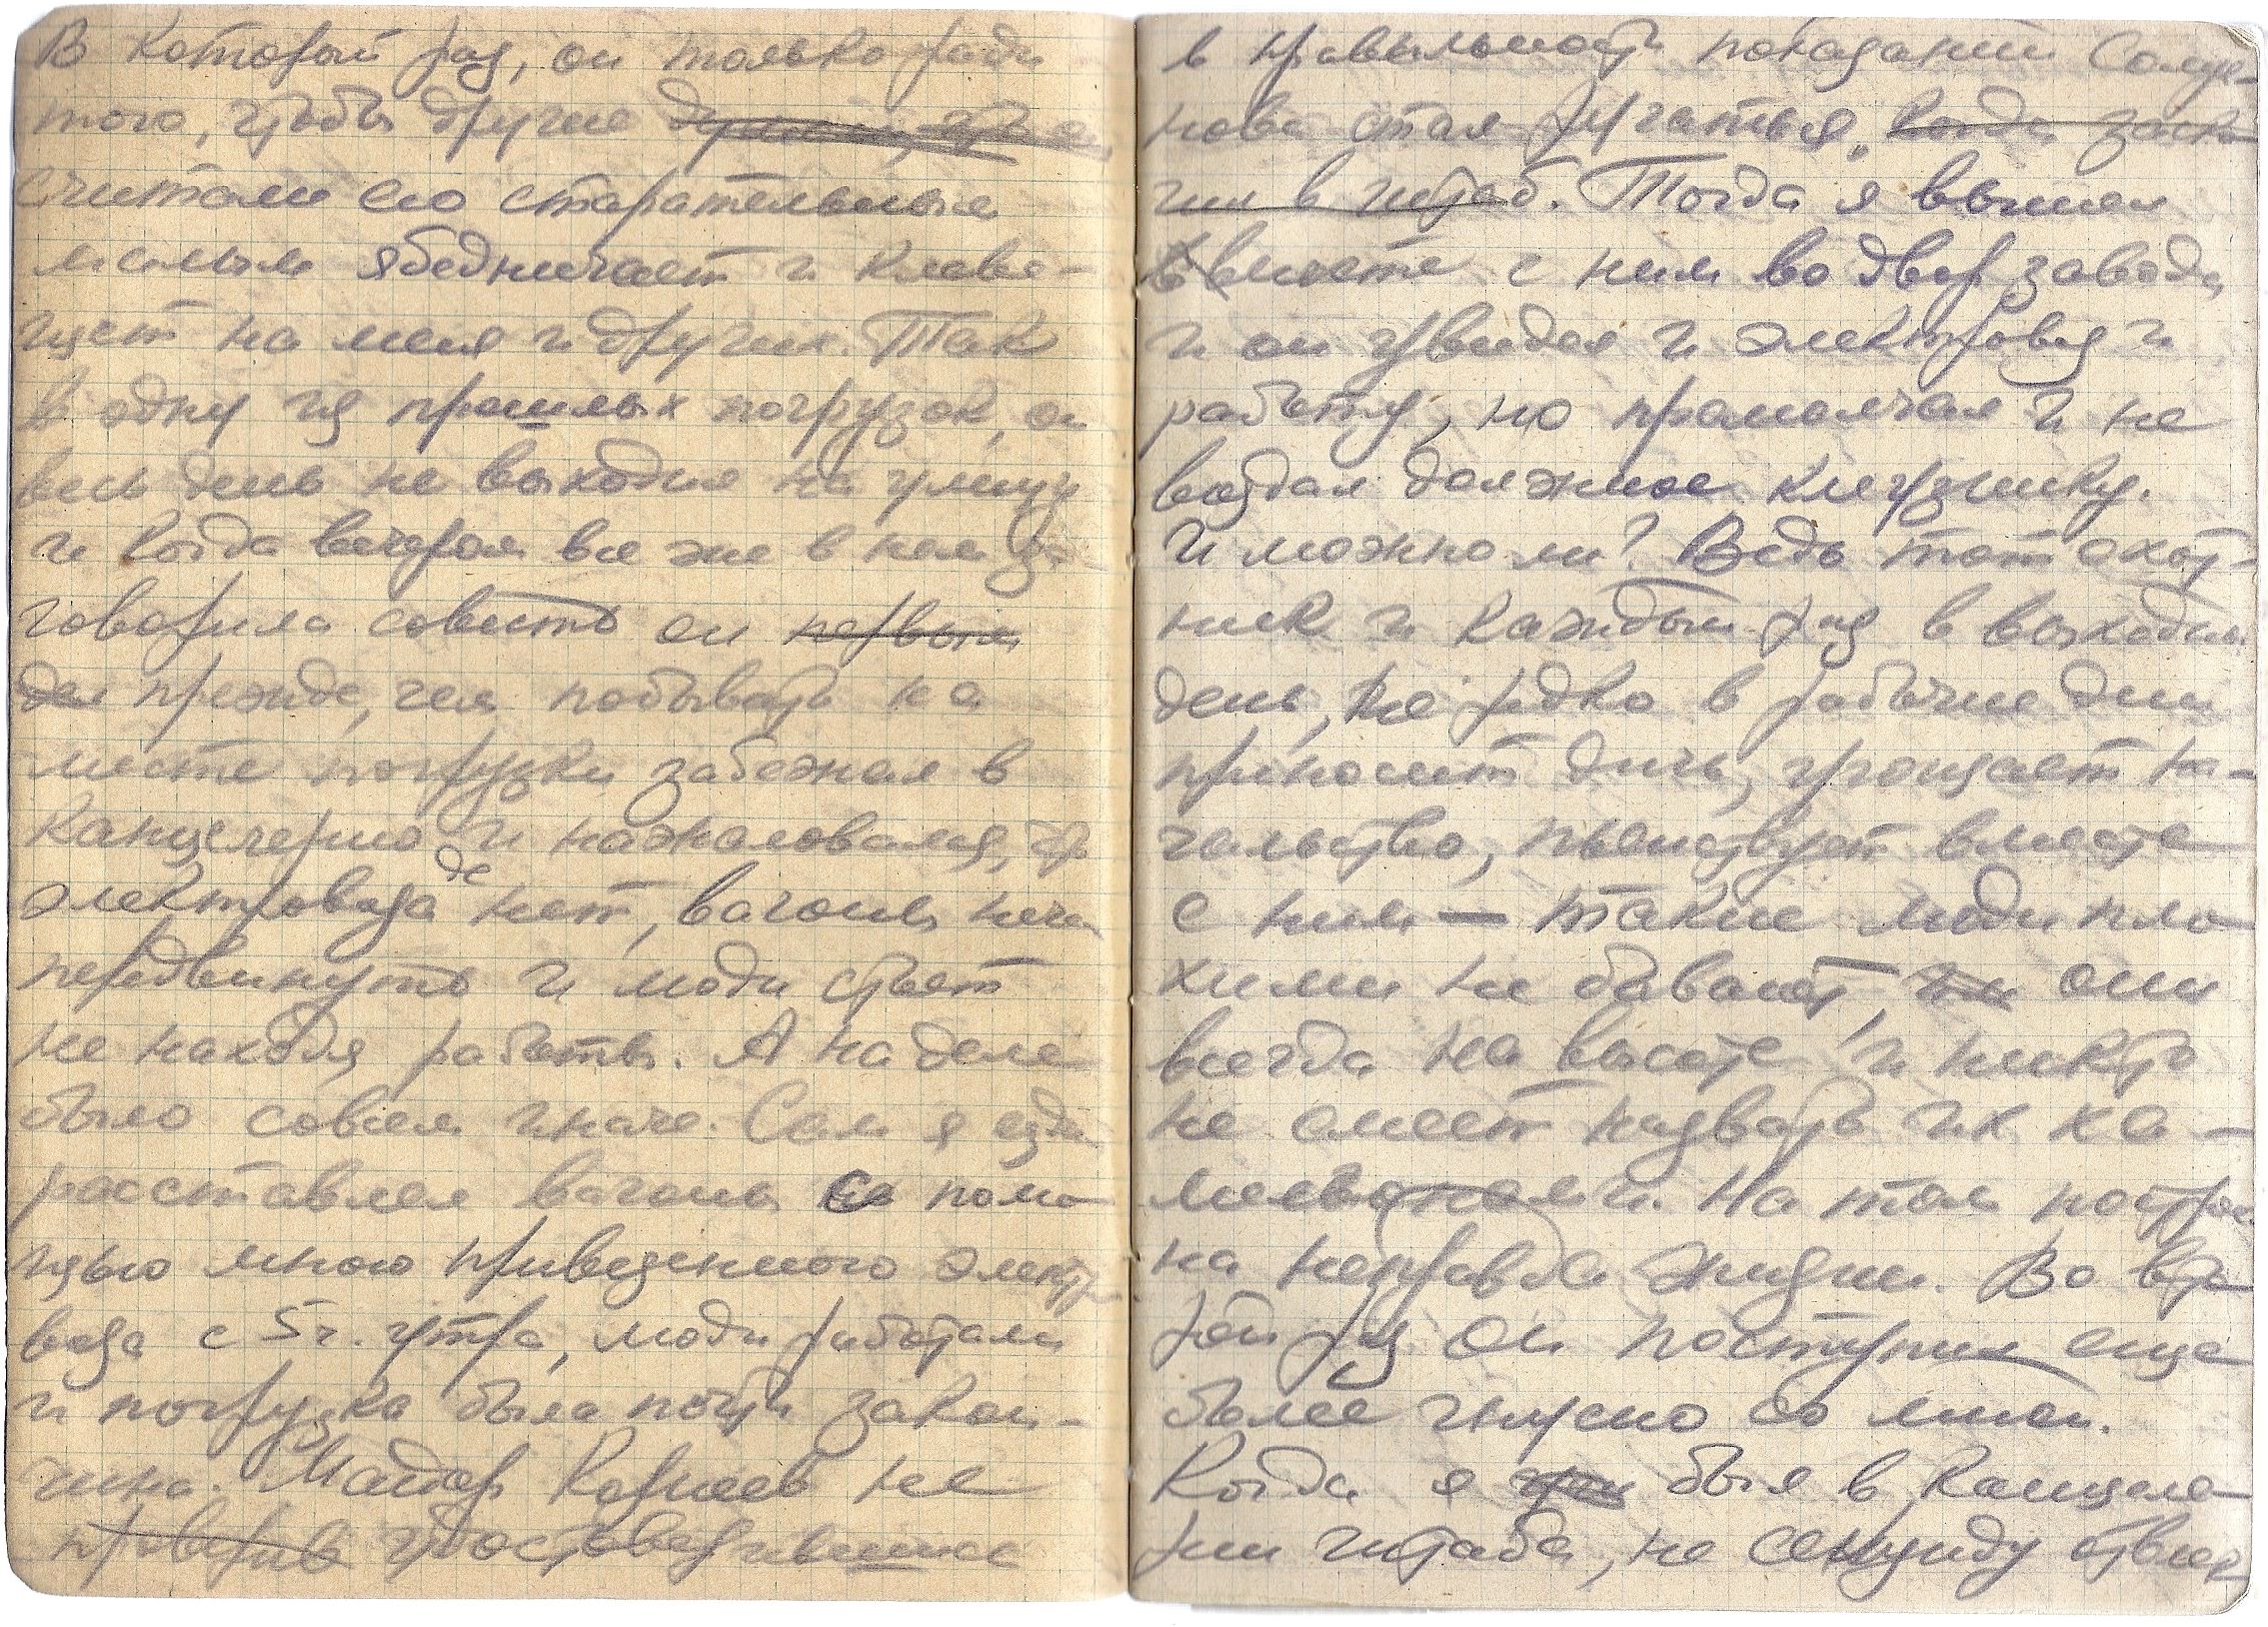 В который раз, он только ради
того, чтобы другие думали, что он
считали его старательным
малым ябедничает и клеве-
щет на меня и других. Так
в одну из прошлых погрузок, он
весь день не выходил на улицу
и когда вечером все же в нем за-
говорила совесть он первым
дел прежде, чем побывать на
месте погрузки забежал в
канцелерию и нажаловался, что
электровоза де нет, вагоны нечем
передвинуть и люди стоят
не находя работы. А на деле
было совсем иначе. Сам я
расставлял вагоны с помо-
щью мною приведенного электро
воза с 5 ч. утра, люди работали
и погрузка была почти закон-
чена. Майор Корнеев не
проверив удостоверившись
в правильности показаний
стал ругаться, когда
в штаб. Тогда я вышел
вместе с ним во двор завода
и он увидел и электровоз и
работу, но промолчал и не
воздал должное кляузнику.
И можно ли? Ведь тот охот-
ник и каждый раз в выходный
день, не редко в рабочие дни
приносит дичь, угощает на-
чальство, пьянствует вместе
с ним — такие люди пло-
хими не бывают, они
всегда на высоте и никто
не смеет назвать их ха-
мелеонами. На том построе
на неправда жизни. Во вто-
рой раз он поступил еще
более гнусно со мной.
Когда я был в канцеля-
рии штаба, на секунду отвлек